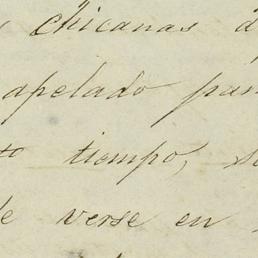 chicanas d
apelado par
to tiempo, s
de verse en